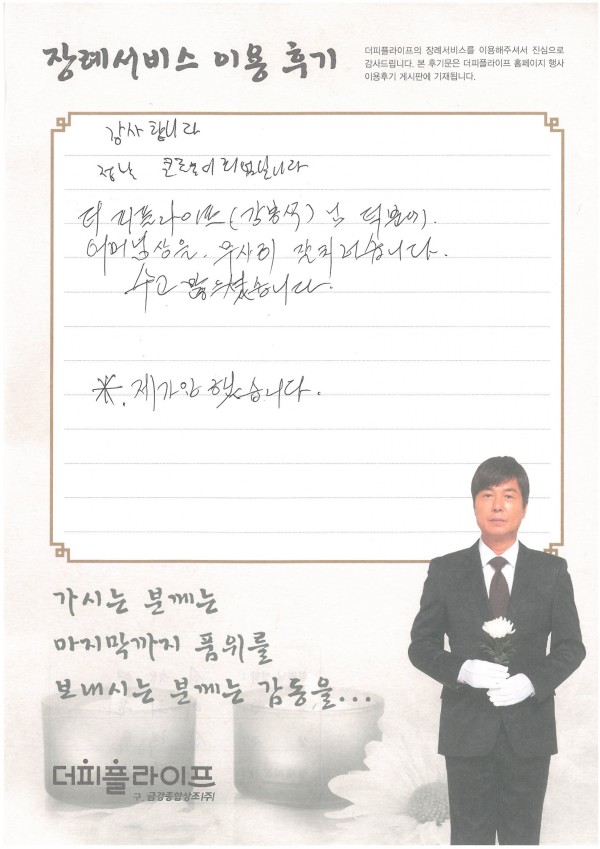 장례서비스 이용 후기
더피플라이프의 장례서비스를 이용해주셔서 진심으로
감사드립니다. 본 후기문은 더피플라이프 홈페이지 행사
이용후기 게시판에 기재됩니다.
감사합니다
더 피플라이프 님 덕분에.
어머님상을. 무사히 잘치러습니다.
수고 많으셨습니다.
※. 제가입 했습니다.
가시는 분께는
마지막까지 품위를
보내시는 분께는 감동을...
더피플라이프
구. 금강종합상조(주)